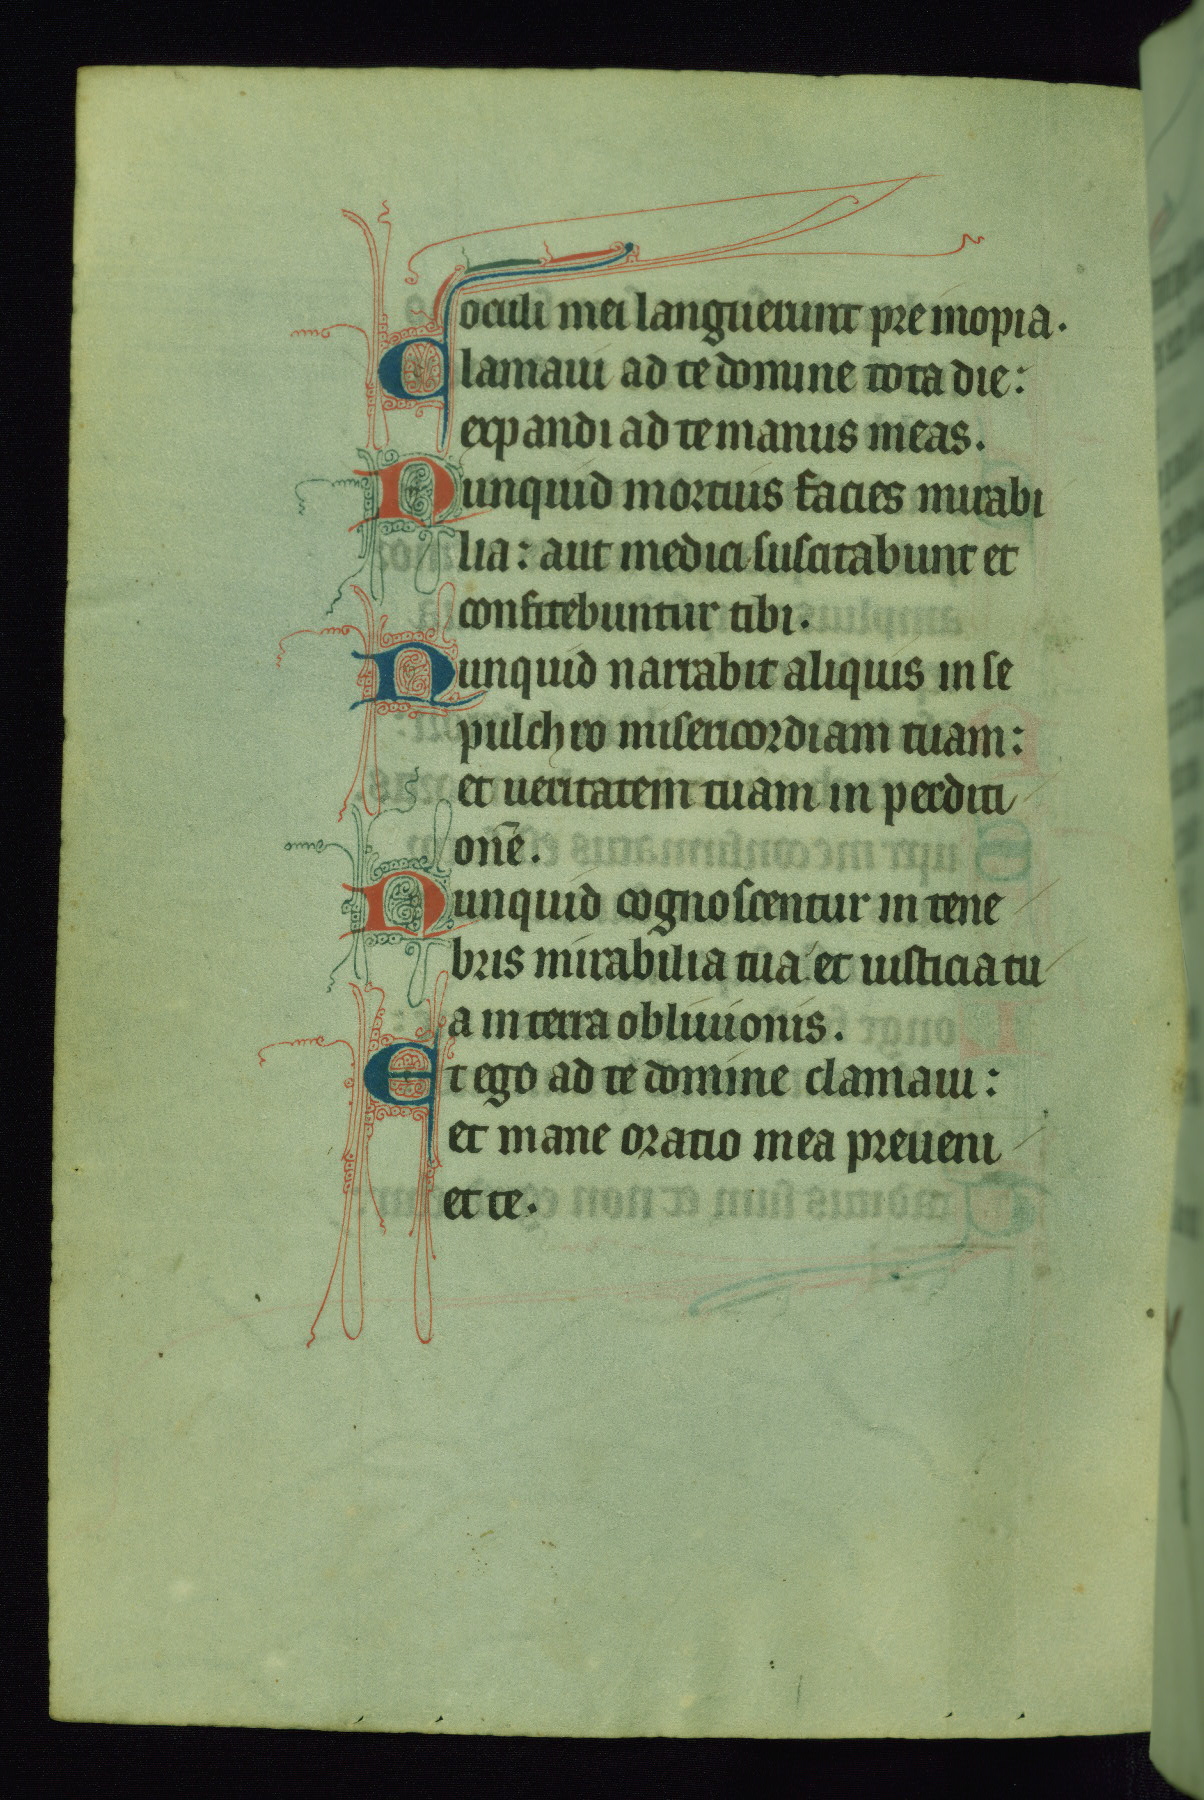 oculi mei languerunt pre inopia.
Clamaui ad te domine tota die:
expandi ad te manus meas.
Nunquid mortuis facies mirabi
lia: aut medici suscitabunt et
confitebuntur tibi.
Nunquid narrabit aliquis in se
pulchro misericordiam tuam:
et ueritatem tuam in perditi
onē.
Nunquid cognoscentur in tene
bris mirabilia tua et iusticia tu
a in terra obliuionis.
Et ego ad te domine clamaui:
et mane oratio mea preueni
et te.